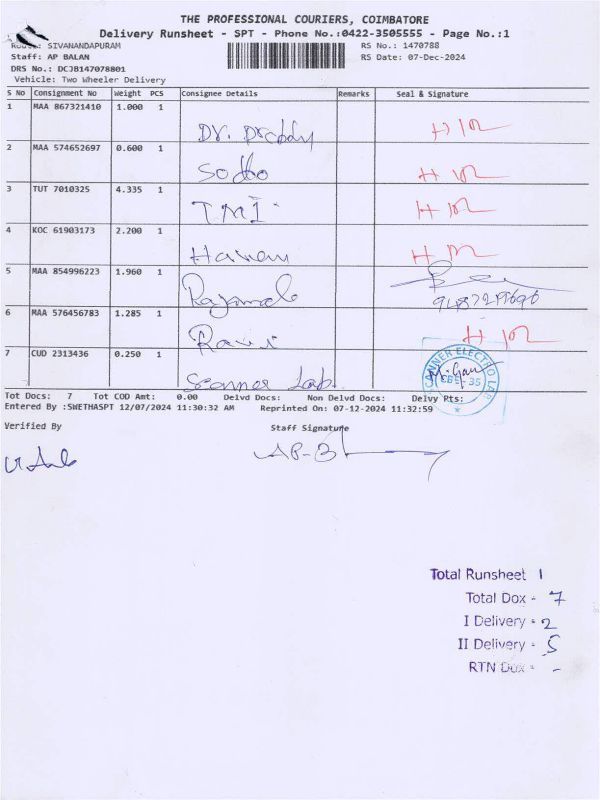 THE PROFESSIONAL COURIERS, COIMBATORE
Delivery Runsheet - SPT - Phone No.:0422-3505555 - Page No.:1
Route: SIVANANDAPURAM RS No.: 1470788
Staff: AP BALAN RS Date: 07-Dec-2024
DRS No.: DCJB147078801
Vehicle: Two Wheeler Delivery
S No Consignment No Weight PCS Consignee Details Remarks Seal & Signature
1 MAA 867321410 1.000 1
Dr. Dreddy
2 MAA 574652697 0.600 1
3 TUT 7010325 4.335 1
TMI
4 KOC 61903173 2.200 1
5 MAA 854996223 1.960 1
6 MAA 576456783 1.285 1
Ravi
7 CUD 2313436 0.250 1
Scanner Lab.
Tot Docs: 7 Tot COD Amt: 0.00 Delvd Docs: Non Delvd Docs: Delvy Pts:
Entered By :SWETHASPT 12/07/2024 11:30:32 AM Reprinted On: 07-12-2024 11:32:59
Verified By Staff Signature
AP-B
Total Runsheet 1
Total Dox - 7
I Delivery - 2
II Delivery - 5
RTN Dox - -